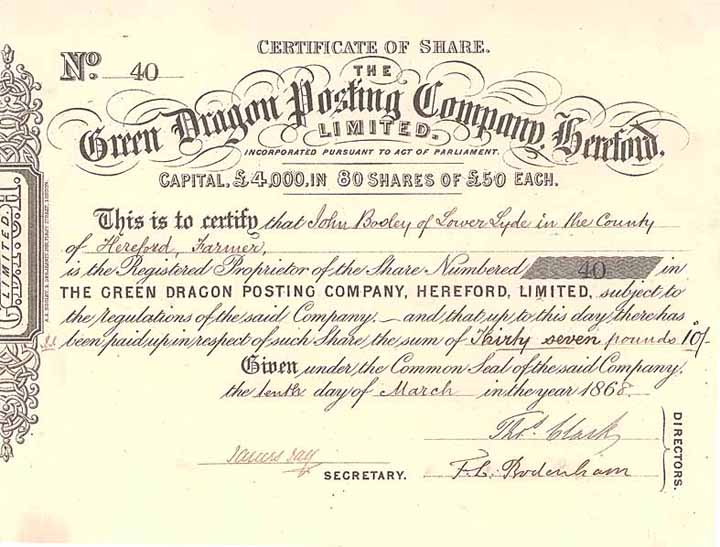 CERTIFICATE OF SHARE.
No. 40
THE
Green Dragon Posting Company, Hereford.
LIMITED.
INCORPORATED PURSUANT TO ACT OF PARLIAMENT.
CAPITAL, £4,000, IN 80 SHARES OF £50 EACH.
This is to certify that John Bosley of Lower Lyde in the County
of Hereford, Farmer,
is the Registered Proprietor of the Share Numbered 40 in
THE GREEN DRAGON POSTING COMPANY, HEREFORD, LIMITED, subject to
the regulations of the said Company.—and that up to this day, there has
been paid up in respect of such Share the sum of Thirty seven pounds 10/-
Given under the Common Seal of the said Company,
the tenth day of March in the year 1868.
Thos. Clark
James Jay
F. L. Bodenham
SECRETARY.
DIRECTORS.
LIMITED.